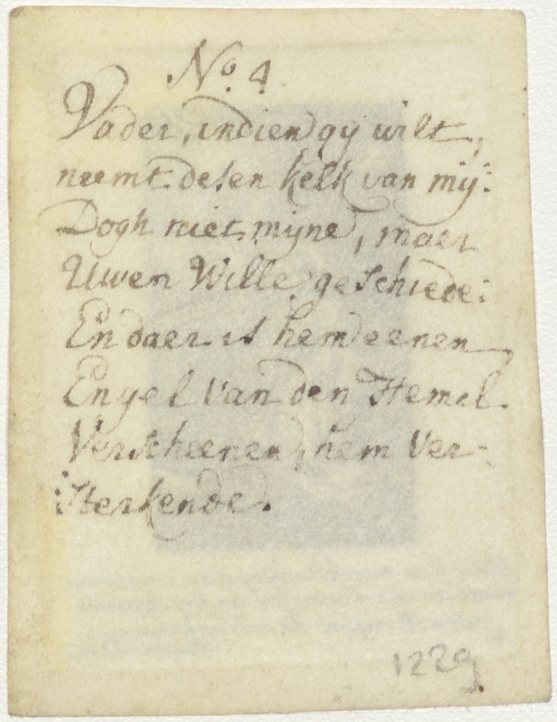 No. 4
Vader, indien gy wilt,
neemt desen kelk van my:
Dogh niet myne, maer
Uwen Wille geschiede:
En daer is hem eenen
Engel Van den Hemel
Verscheenen, hem Ver-
sterkende.
1229